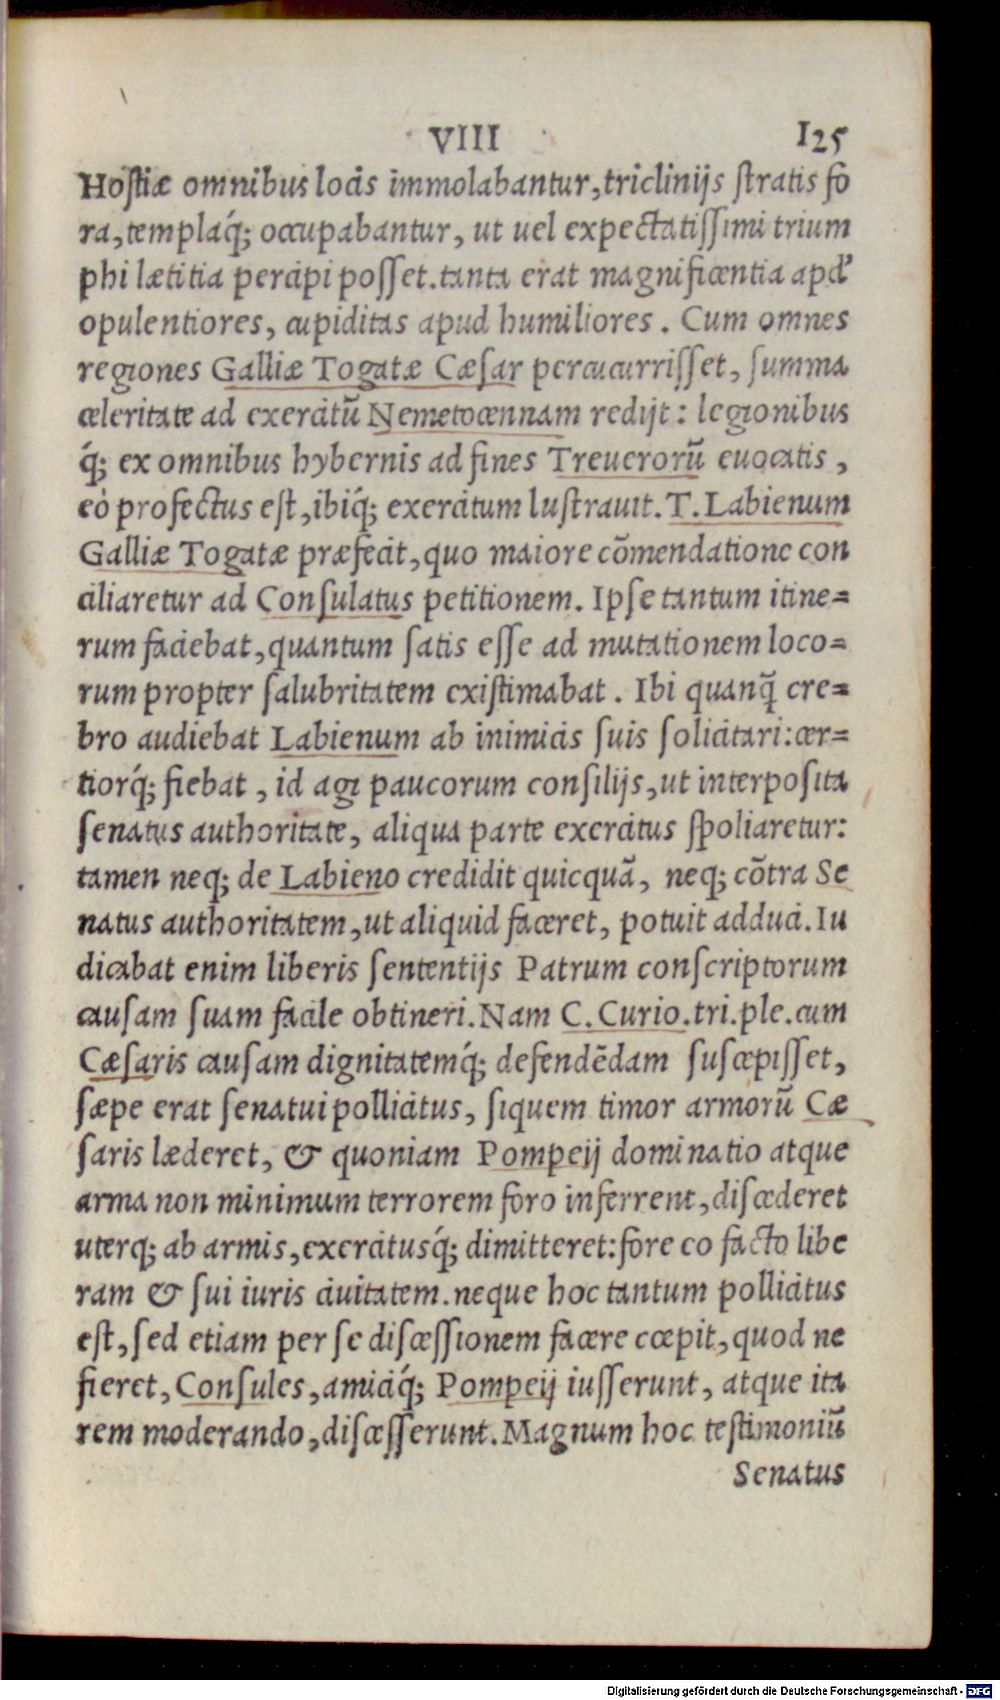 VIII 125
Hoſtiæ omnibus locis immolabantur, triclinijs ſtratis fo
ra, templaq́; occupabantur, ut uel expectatiſſimi trium
phi lætitia percipi poſſet. tanta erat magnificentia apđ
opulentiores, cupiditas apud humiliores. Cum omnes
regiones Galliæ Togatæ Cæſar percucurriſſet, ſumma
celeritate ad exercitū Nemetocennam redijt: legionibus
q́; ex omnibus hybernis ad fines Treuerorū euocatis,
eò profectus eſt, ibiq́; exercitum luſtrauit. T. Labienum
Galliæ Togatæ præfecit, quo maiore cōmendatione con
ciliaretur ad Conſulatus petitionem. Ipſe tantum itine=
rum faciebat, quantum ſatis eſſe ad mutationem loco=
rum propter ſalubritatem exiſtimabat. Ibi quanq̃ cre=
bro audiebat Labienum ab inimicis ſuis ſolicitari: cer=
tiorq́; fiebat, id agi paucorum conſilijs, ut interpoſita
ſenatus authoritate, aliqua parte exercitus ſpoliaretur:
tamen neq; de Labieno credidit quicquā, neq; cōtra Se
natus authoritatem, ut aliquid faceret, potuit adduci. Iu
dicabat enim liberis ſententijs Patrum conſcriptorum
cauſam ſuam facile obtineri. Nam C. Curio. tri. ple. cum
Cæſaris cauſam dignitatemq́; defendēdam ſuſcepiſſet,
ſæpe erat ſenatui pollicitus, ſiquem timor armorū Cæ
ſaris læderet, & quoniam Pompeij dominatio atque
arma non minimum terrorem foro inferrent, diſcederet
uterq; ab armis, exercitusq́; dimitteret: fore eo facto libe
ram & ſui iuris ciuitatem. neque hoc tantum pollicitus
eſt, ſed etiam per ſe diſceſſionem facere cœpit, quod ne
fieret, Conſules, amiciq́; Pompeij iuſſerunt, atque ita
rem moderando, diſceſſerunt. Magnum hoc teſtimoniū
Senatus
Digitalisierung gefördert durch die Deutsche Forschungsgemeinschaft - DFG